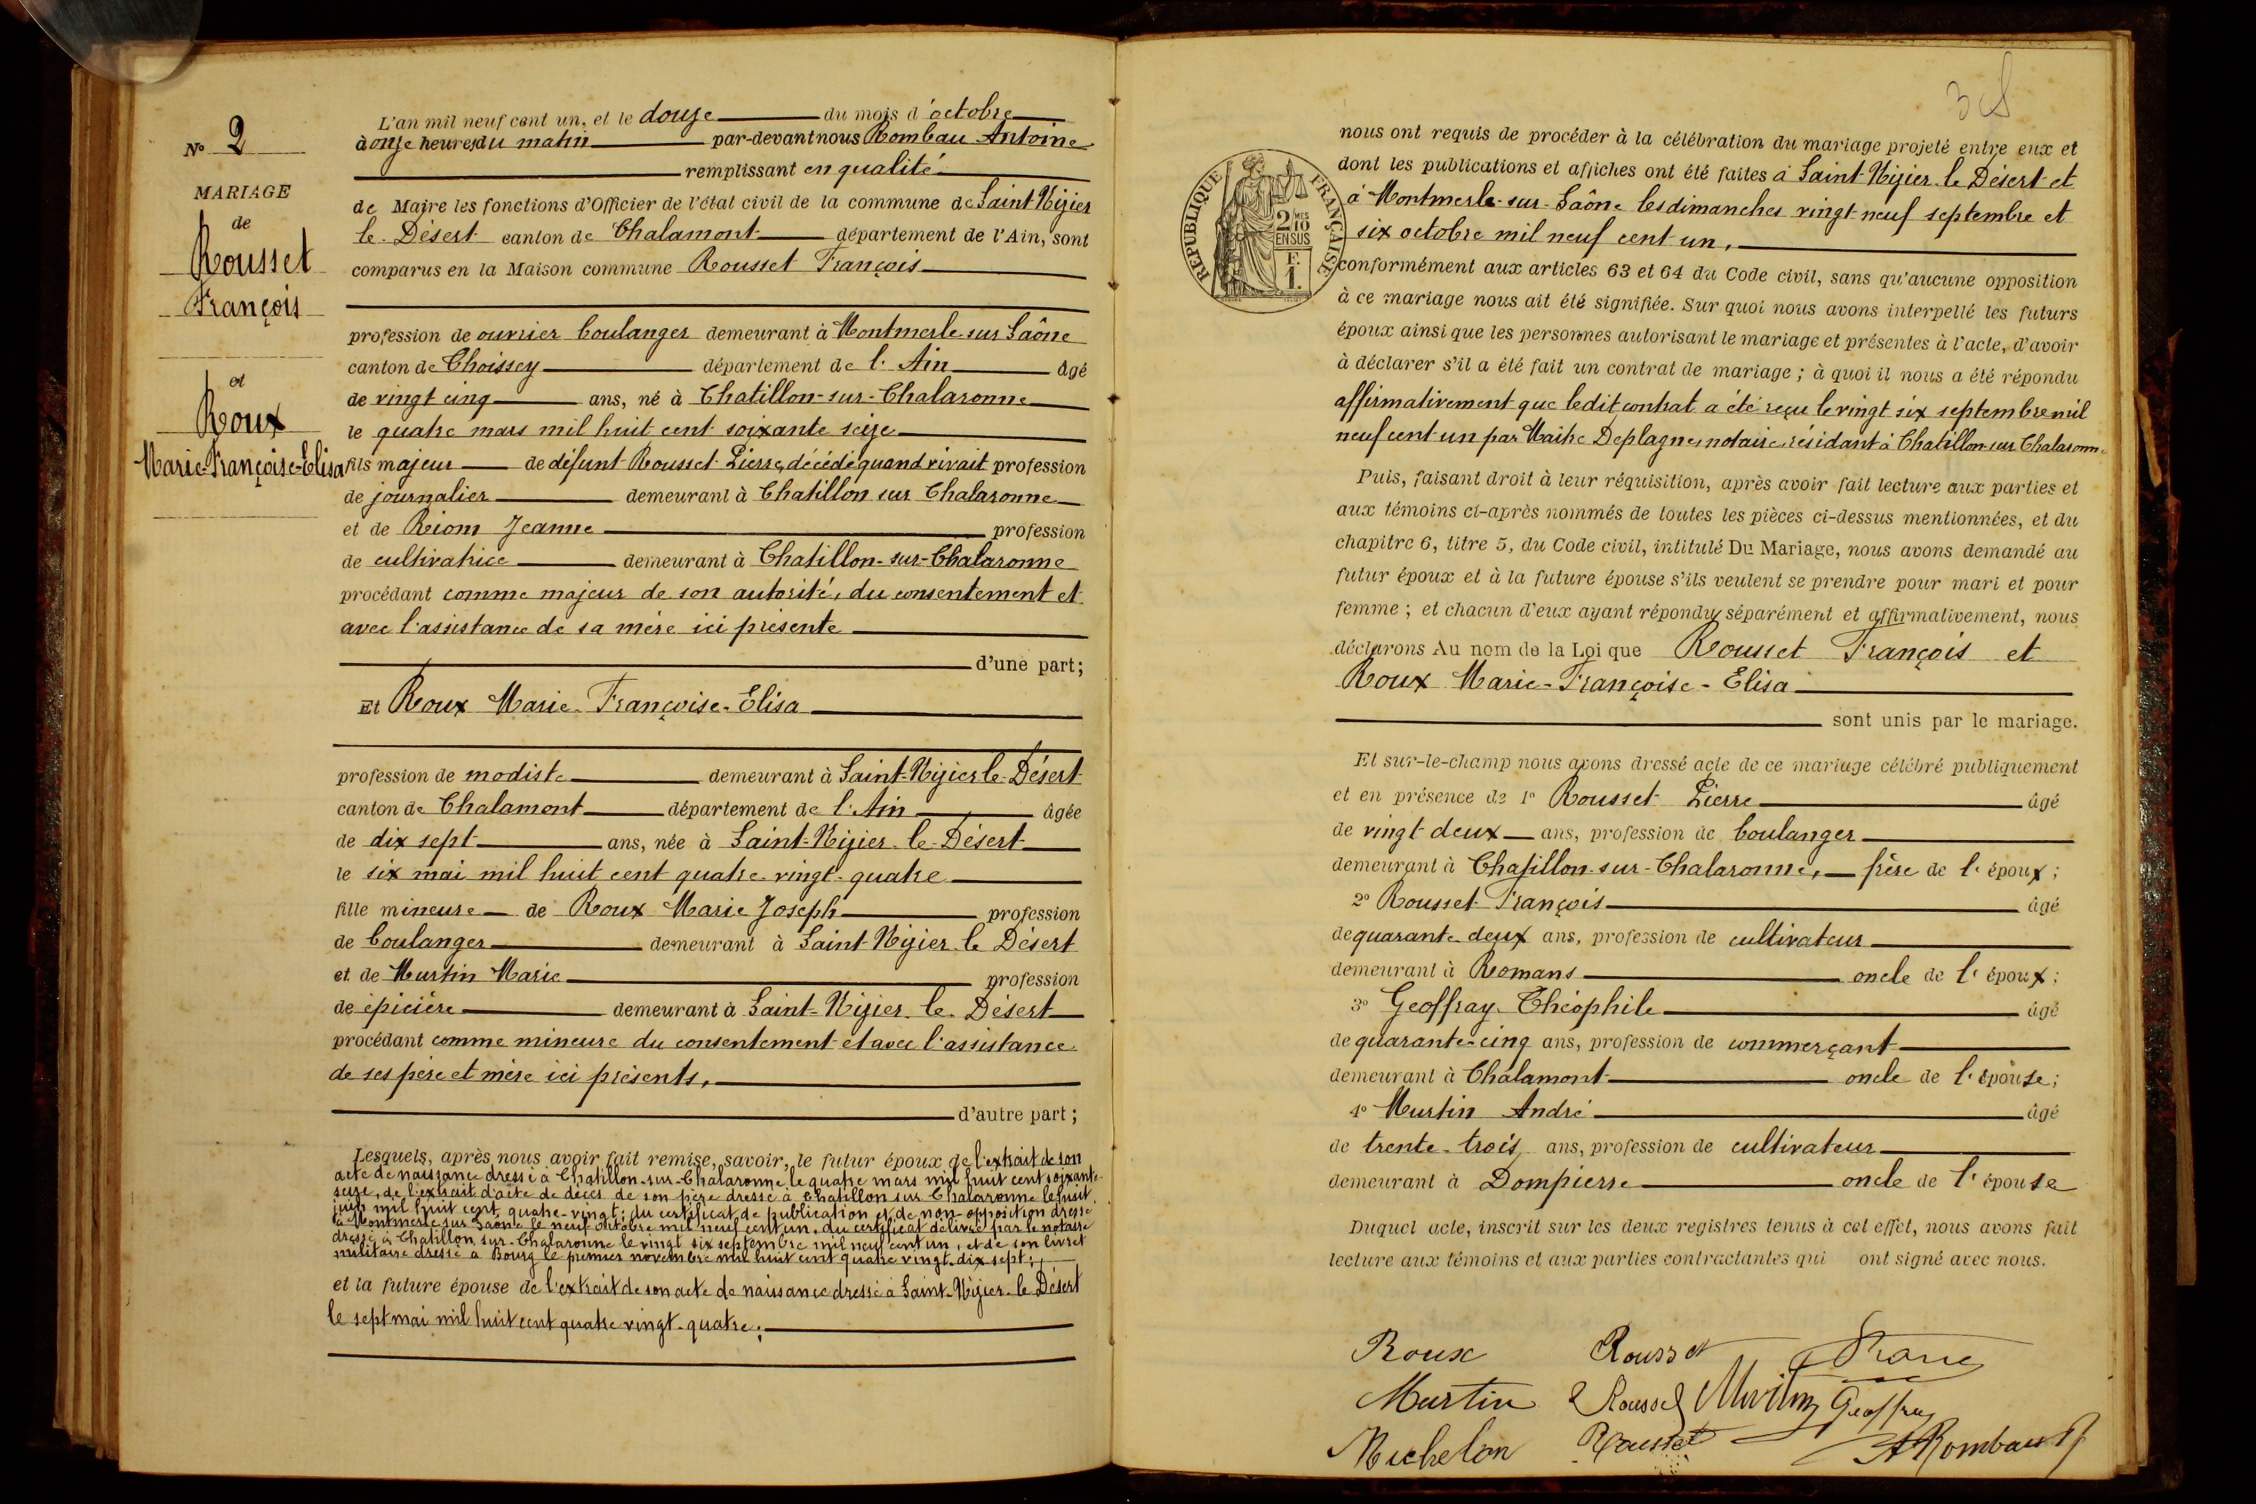 L'an mil neuf cent un, et le douze du mois d'octobre
à onze heures du matin par-devant nous Rombau Antoine
remplissant en qualité
de Maire les fonctions d'Officier de l'état civil de la commune de Saint Nizier
le Désert canton de Chalamont département de l'Ain, sont
comparus en la Maison commune Rousset François
profession de ouvrier boulanger demeurant à Montmerle sur Saône
canton de Thoissey département de l'Ain âgé
de vingt cinq ans, né à Chatillon-sur-Chalaronne
le quatre mars mil huit cent soixante seize
fils majeur de défunt Rousset Pierre, décédé quand vivait profession
de journalier demeurant à Chatillon sur Chalaronne
et de Riom Jeanne profession
de cultivatrice demeurant à Chatillon-sur-Chalaronne
procédant comme majeur de son autorité, du consentement et
avec l'assistance de sa mère ici présente
d'une part;
Et Roux Marie-Françoise-Elisa
profession de modiste demeurant à Saint-Nizier le Désert
canton de Chalamont département de l'Ain âgée
de dix sept ans, née à Saint-Nizier-le-Désert
le six mai mil huit cent quatre-vingt-quatre
fille mineure de Roux Marie Joseph profession
de boulanger demeurant à Saint-Nizier le Désert
et de Murtin Marie profession
de épicière demeurant à Saint-Nizier-le-Désert
procédant comme mineure du consentement et avec l'assistance
de ses père et mère ici présents,
d'autre part;
Lesquels, après nous avoir fait remise, savoir, le futur époux de l'extrait de son
acte de naissance dressé à Chatillon-sur-Chalaronne le quatre mars mil huit cent soixante-
seize, de l'extrait d'acte de décès de son père dressé à Chatillon sur Chalaronne le huit
juin mil huit cent quatre-vingt; du certificat de publication et de non-opposition dressé
à Montmerle sur Saône le neuf octobre mil neuf cent un, du certificat délivré par le notaire
dressé à Chatillon sur Chalaronne le vingt six septembre mil neuf cent un, et de son livret
militaire dressé à Bourg le premier novembre mil huit cent quatre vingt-dix sept;
et la future épouse de l'extrait de son acte de naissance dressé à Saint-Nizier-le Désert
le sept mai mil huit cent quatre vingt-quatre;
No 2
MARIAGE
de
Rousset
François
et
Roux
Marie-Françoise-Elisa
nous ont requis de procéder à la célébration du mariage projeté entre eux et
dont les publications et affiches ont été faites à Saint-Nizier-le Désert et
à Montmerle-sur-Saône les dimanches vingt-neuf septembre et
six octobre mil neuf cent un,
conformément aux articles 63 et 64 du Code civil, sans qu'aucune opposition
à ce mariage nous ait été signifiée. Sur quoi nous avons interpellé les futurs
époux ainsi que les personnes autorisant le mariage et présentes à l'acte, d'avoir
à déclarer s'il a été fait un contrat de mariage; à quoi il nous a été répondu
affirmativement que ledit contrat a été reçu le vingt six septembre mil
neuf cent un par Maître Deplagne, notaire, résidant à Chatillon-sur-Chalaronne
Puis, faisant droit à leur réquisition, après avoir fait lecture aux parties et
aux témoins ci-après nommés de toutes les pièces ci-dessus mentionnées, et du
chapitre 6, titre 5, du Code civil, intitulé Du Mariage, nous avons demandé au
futur époux et à la future épouse s'ils veulent se prendre pour mari et pour
femme; et chacun d'eux ayant répondu séparément et affirmativement, nous
déclarons Au nom de la Loi que Rousset François et
Roux Marie-Françoise-Elisa
sont unis par le mariage.
Et sur-le-champ nous avons dressé acte de ce mariage célébré publiquement
et en présence de 1º Rousset Pierre âgé
de vingt deux ans, profession de boulanger
demeurant à Chatillon-sur-Chalaronne, frère de l'époux;
2º Rousset François âgé
de quarante-deux ans, profession de cultivateur
demeurant à Romans oncle de l'époux;
3º Geoffray Théophile âgé
de quarante-cinq ans, profession de commerçant
demeurant à Chalamont oncle de l'épouse;
4º Murtin André âgé
de trente-trois ans, profession de cultivateur
demeurant à Dompierre oncle de l'épouse
Duquel acte, inscrit sur les deux registres tenus à cet effet, nous avons fait
lecture aux témoins et aux parties contractantes qui ont signé avec nous.
RÉPUBLIQUE FRANÇAISE
2 MES
10
EN SUS
F.
1.
Roux Rousset
Murtin Rousset Murtin Geoffray
Michelon Rousset A Rombaut